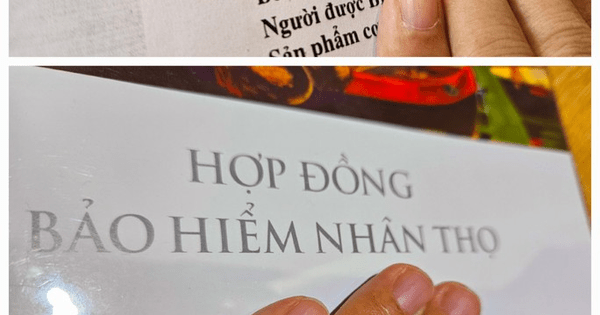 Người được
Sản phẩm
HỢP ĐỒNG
BẢO HIỂM NHÂN THỌ